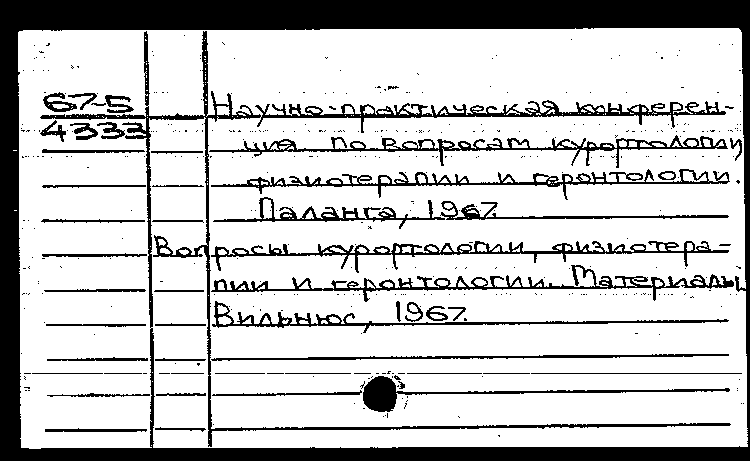 67-5
4333
Научно-практическая конферен-
ция по вопросам курортологии,
физиотерапии и геронтологии.
Паланга, 1967.
Вопросы курортологии, физиотера-
пии и геронтологии. Материалы.
Вильнюс, 1967.